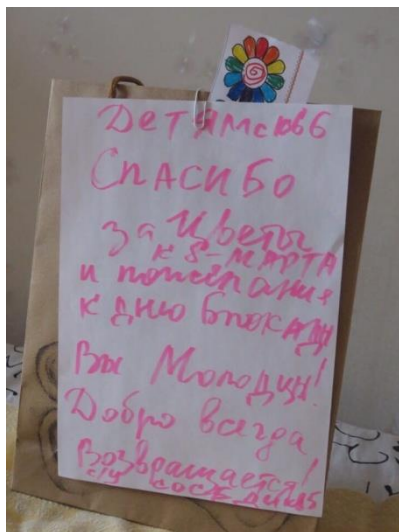 Детям
Спасибо
за цветы
к 8-марта
и пожелания
к дню блокады
Вы Молодцы!
Добро всегда
Возвращается!